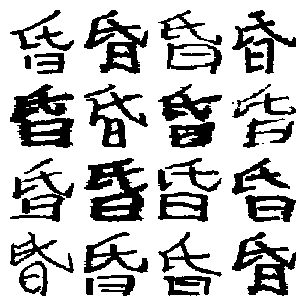 昏昏昏昏
昏昏昏昏
昏昏昏昏
昏昏昏昏